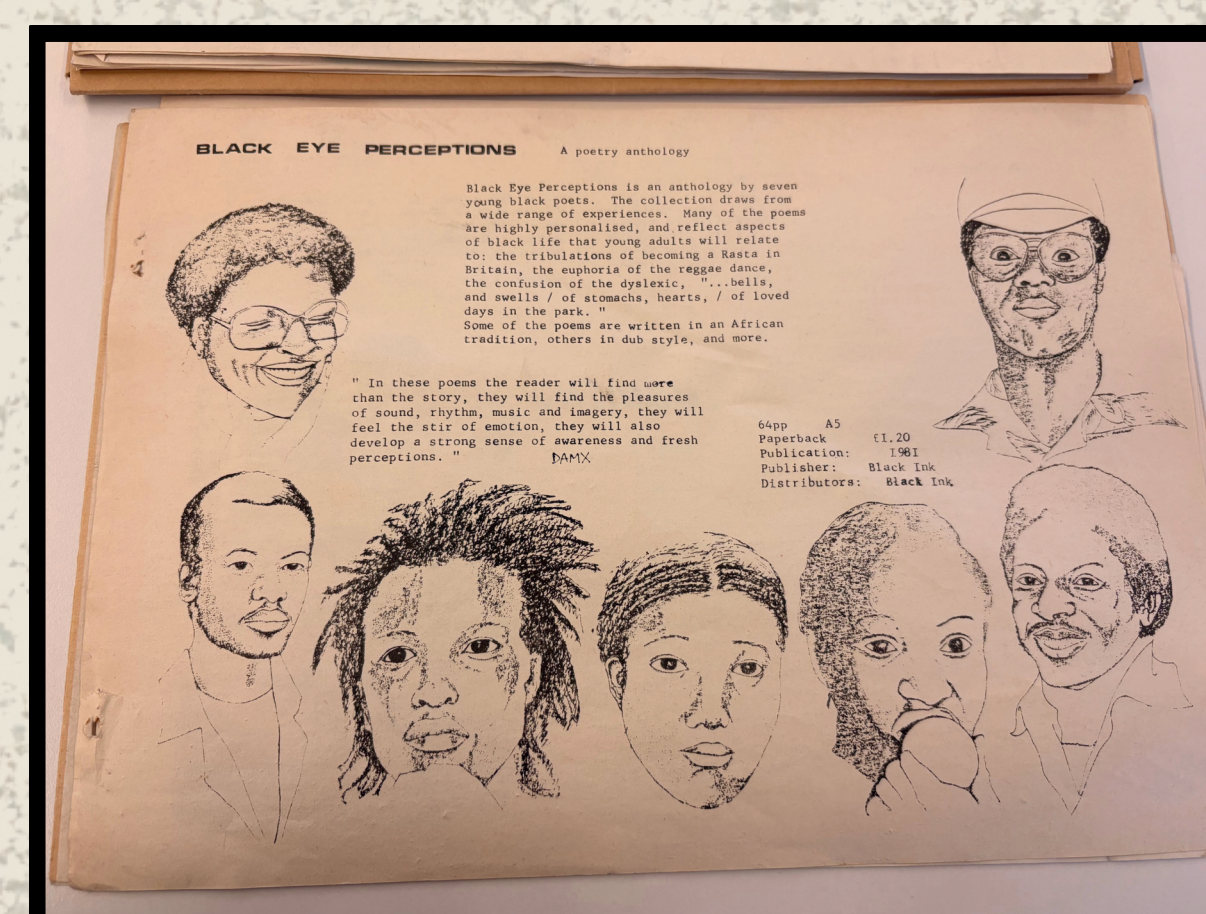 BLACK EYE PERCEPTIONS A poetry anthology
Black Eye Perceptions is an anthology by seven
young black poets. The collection draws from
a wide range of experiences. Many of the poems
are highly personalised, and reflect aspects
of black life that young adults will relate
to: the tribulations of becoming a Rasta in
Britain, the euphoria of the reggae dance,
the confusion of the dyslexic, "...bells,
and swells / of stomachs, hearts, / of loved
days in the park. "
Some of the poems are written in an African
tradition, others in dub style, and more.
" In these poems the reader will find more
than the story, they will find the pleasures
of sound, rhythm, music and imagery, they will
feel the stir of emotion, they will also
develop a strong sense of awareness and fresh
perceptions. " DAMX
64pp A5
Paperback £I.20
Publication: I98I
Publisher: Black Ink
Distributors: Black Ink